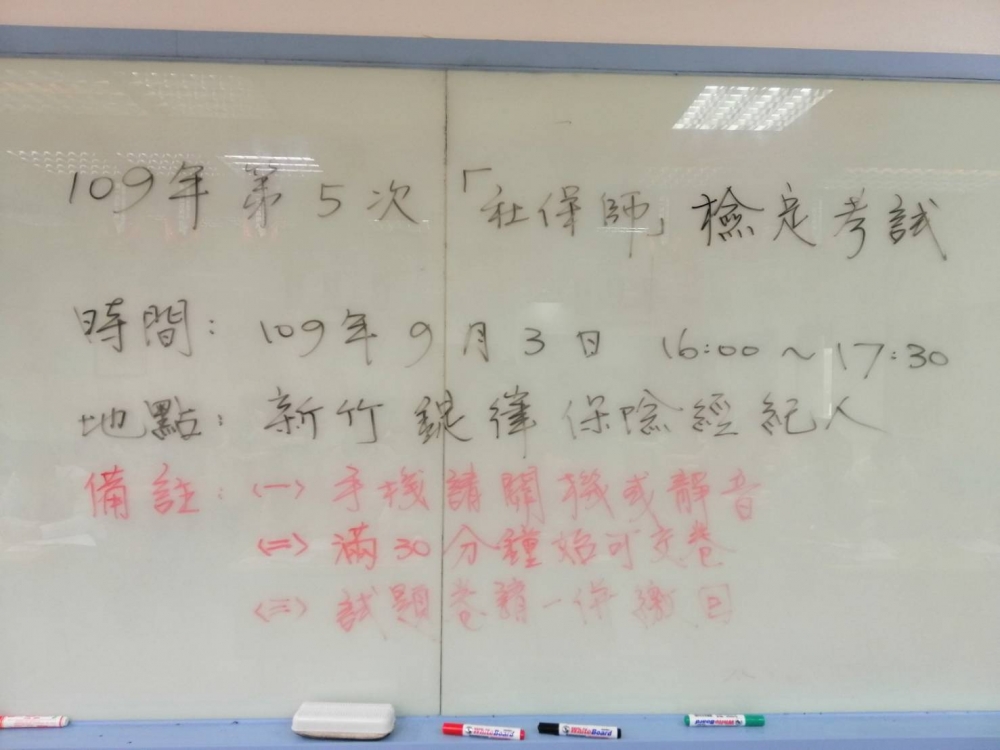 109年第5次「社保師」檢定考試
時間：109年9月3日 16:00～17:30
地點：新竹錠嵂保險經紀人
備註：〈一〉手機請關機或靜音
〈二〉滿30分鐘始可交卷
〈三〉試題卷請一併繳回
WhiteBoard
WhiteBoard